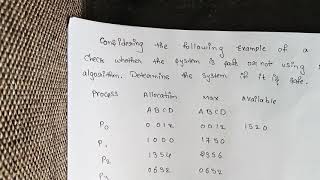 Considering the following example of a
check whether the system is safe or not using
algorithm. Determine the system if it is safe.
Process Allocation Max Available
A B C D A B C D
P0 0 0 1 2 0 0 1 2 1 5 2 0
P1 1 0 0 0 1 7 5 0
P2 1 3 5 4 2 3 5 6
P3 0 6 3 2 0 6 5 2